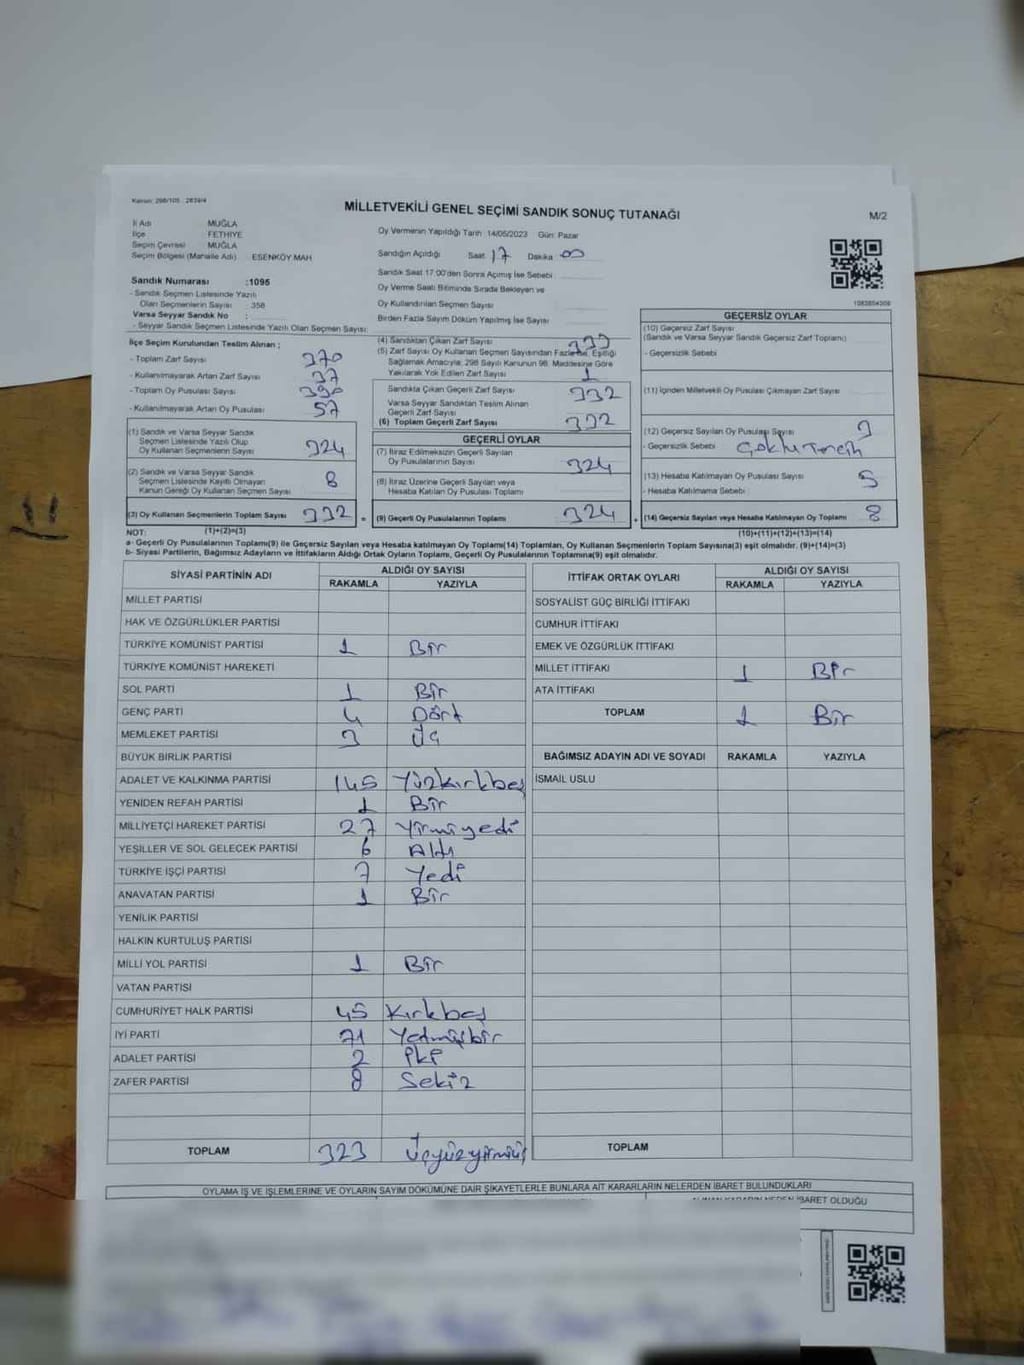 Kanun: 298/105 - 2839/4
MİLLETVEKİLİ GENEL SEÇİMİ SANDIK SONUÇ TUTANAĞI
M/2
İl Adı : MUĞLA
İlçe : FETHİYE
Seçim Çevresi : MUĞLA
Seçim Bölgesi (Mahalle Adı) : ESENKÖY MAH
Sandık Numarası :1095
- Sandık Seçmen Listesinde Yazılı
Olan Seçmenlerin Sayısı : 358
Varsa Seyyar Sandık No :
- Seyyar Sandık Seçmen Listesinde Yazılı Olan Seçmen Sayısı:
Oy Vermenin Yapıldığı Tarih :14/05/2023 Gün: Pazar
Sandığın Açıldığı Saat 17 Dakika 00
Sandık Saat 17:00'den Sonra Açılmış İse Sebebi :
Oy Verme Saati Bitiminde Sırada Bekleyen ve
Oy Kullandırılan Seçmen Sayısı
Birden Fazla Sayım Döküm Yapılmış İse Sayısı
1083854309
İlçe Seçim Kurulundan Teslim Alınan ;
- Toplam Zarf Sayısı 370
- Kullanılmayarak Artan Zarf Sayısı 37
- Toplam Oy Pusulası Sayısı 390
- Kullanılmayarak Artan Oy Pusulası 57
(1) Sandık ve Varsa Seyyar Sandık
Seçmen Listesinde Yazılı Olup
Oy Kullanan Seçmenlerin Sayısı 324
(2) Sandık ve Varsa Seyyar Sandık
Seçmen Listesinde Kayıtlı Olmayan
Kanun Gereği Oy Kullanan Seçmen Sayısı 8
(3) Oy Kullanan Seçmenlerin Toplam Sayısı 332 =
(4) Sandıktan Çıkan Zarf Sayısı 333
(5) Zarf Sayısı Oy Kullanan Seçmen Sayısından Fazla ise, Eşitliği
Sağlamak Amacıyla, 298 Sayılı Kanunun 98. Maddesine Göre
Yakılarak Yok Edilen Zarf Sayısı 1
Sandıkta Çıkan Geçerli Zarf Sayısı 332
Varsa Seyyar Sandıktan Teslim Alınan
Geçerli Zarf Sayısı
(6) Toplam Geçerli Zarf Sayısı 332
GEÇERLİ OYLAR
(7) İtiraz Edilmeksizin Geçerli Sayılan
Oy Pusulalarının Sayısı 324
(8) İtiraz Üzerine Geçerli Sayılan veya
Hesaba Katılan Oy Pusulası Toplamı
(9) Geçerli Oy Pusulalarının Toplamı 324 +
GEÇERSİZ OYLAR
(10) Geçersiz Zarf Sayısı
(Sandık ve Varsa Seyyar Sandık Geçersiz Zarf Toplamı)
- Geçersizlik Sebebi
(11) İçinden Milletvekili Oy Pusulası Çıkmayan Zarf Sayısı
(12) Geçersiz Sayılan Oy Pusulası Sayısı 3
- Geçersizlik Sebebi Çoklu Tercih
(13) Hesaba Katılmayan Oy Pusulası Sayısı 5
- Hesaba Katılmama Sebebi
(14) Geçersiz Sayılan veya Hesaba Katılmayan Oy Toplamı 8
NOT: (1)+(2)=(3) (10)+(11)+(12)+(13)=(14)
a- Geçerli Oy Pusulalarının Toplamı(9) ile Geçersiz Sayılan veya Hesaba katılmayan Oy Toplamı(14) Toplamları, Oy Kullanan Seçmenlerin Toplam Sayısına(3) eşit olmalıdır. (9)+(14)=(3)
b- Siyasi Partilerin, Bağımsız Adayların ve İttifakların Aldığı Ortak Oyların Toplamı, Geçerli Oy Pusulalarının Toplamına(9) eşit olmalıdır.
SİYASİ PARTİNİN ADI ALDIĞI OY SAYISI
RAKAMLA YAZIYLA
MİLLET PARTİSİ
HAK VE ÖZGÜRLÜKLER PARTİSİ
TÜRKİYE KOMÜNİST PARTİSİ 1 Bir
TÜRKİYE KOMÜNİST HAREKETİ
SOL PARTİ 1 Bir
GENÇ PARTİ 4 Dört
MEMLEKET PARTİSİ 3 Üç
BÜYÜK BİRLİK PARTİSİ
ADALET VE KALKINMA PARTİSİ 145 Yüzkırkbeş
YENİDEN REFAH PARTİSİ 1 Bir
MİLLİYETÇİ HAREKET PARTİSİ 27 Yirmiyedi
YEŞİLLER VE SOL GELECEK PARTİSİ 6 Altı
TÜRKİYE İŞÇİ PARTİSİ 7 Yedi
ANAVATAN PARTİSİ 1 Bir
YENİLİK PARTİSİ
HALKIN KURTULUŞ PARTİSİ
MİLLİ YOL PARTİSİ 1 Bir
VATAN PARTİSİ
CUMHURİYET HALK PARTİSİ 45 Kırkbeş
İYİ PARTİ 71 Yetmişbir
ADALET PARTİSİ 2 İki
ZAFER PARTİSİ 8 Sekiz
TOPLAM 323 Üçyüzyirmiüç
İTTİFAK ORTAK OYLARI ALDIĞI OY SAYISI
RAKAMLA YAZIYLA
SOSYALİST GÜÇ BİRLİĞİ İTTİFAKI
CUMHUR İTTİFAKI
EMEK VE ÖZGÜRLÜK İTTİFAKI
MİLLET İTTİFAKI 1 Bir
ATA İTTİFAKI
TOPLAM 1 Bir
BAĞIMSIZ ADAYIN ADI VE SOYADI RAKAMLA YAZIYLA
İSMAİL USLU
TOPLAM
OYLAMA İŞ VE İŞLEMLERİNE VE OYLARIN SAYIM DÖKÜMÜNE DAİR ŞİKAYETLERLE BUNLARA AİT KARARLARIN NELERDEN İBARET BULUNDUKLARI
ALINAN KARARIN NEDEN İBARET OLDUĞU